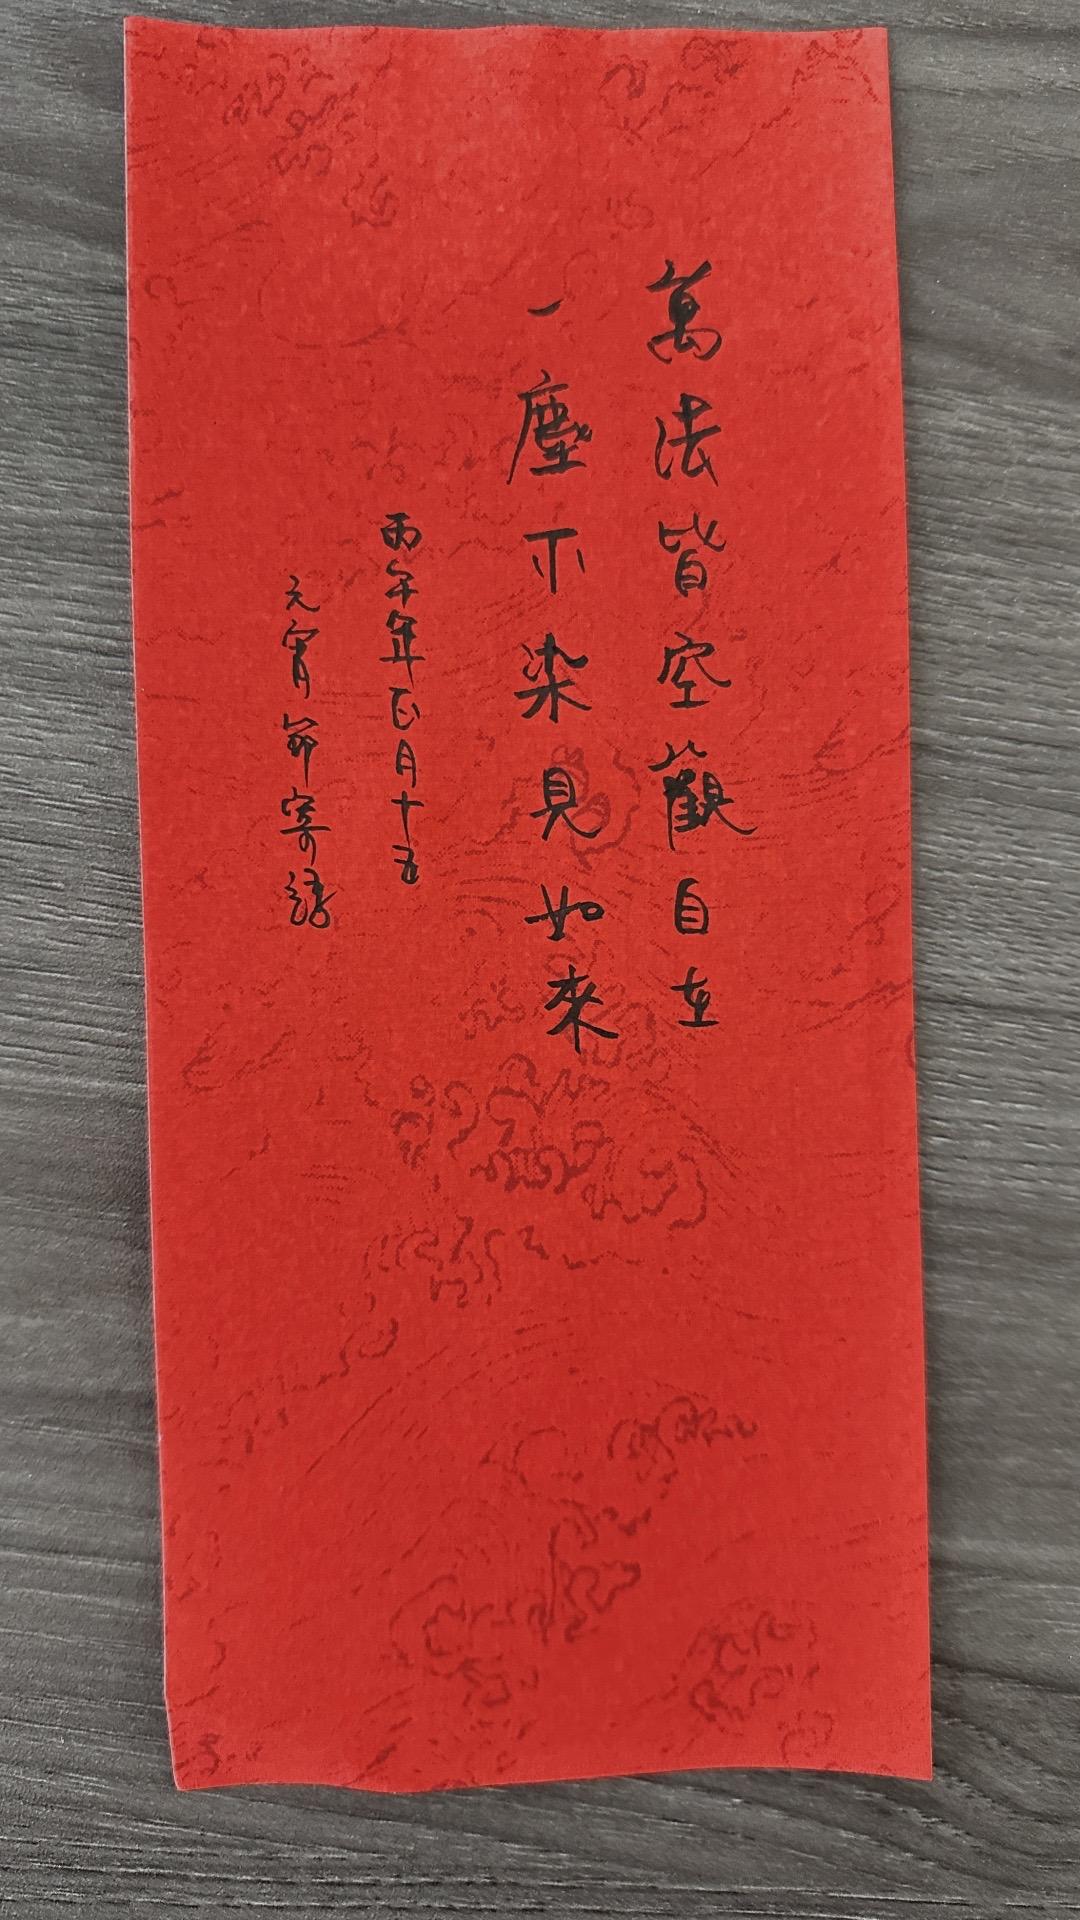 萬法皆空觀自在
一塵不染見如來
丙午年正月十五
元宵節寄語